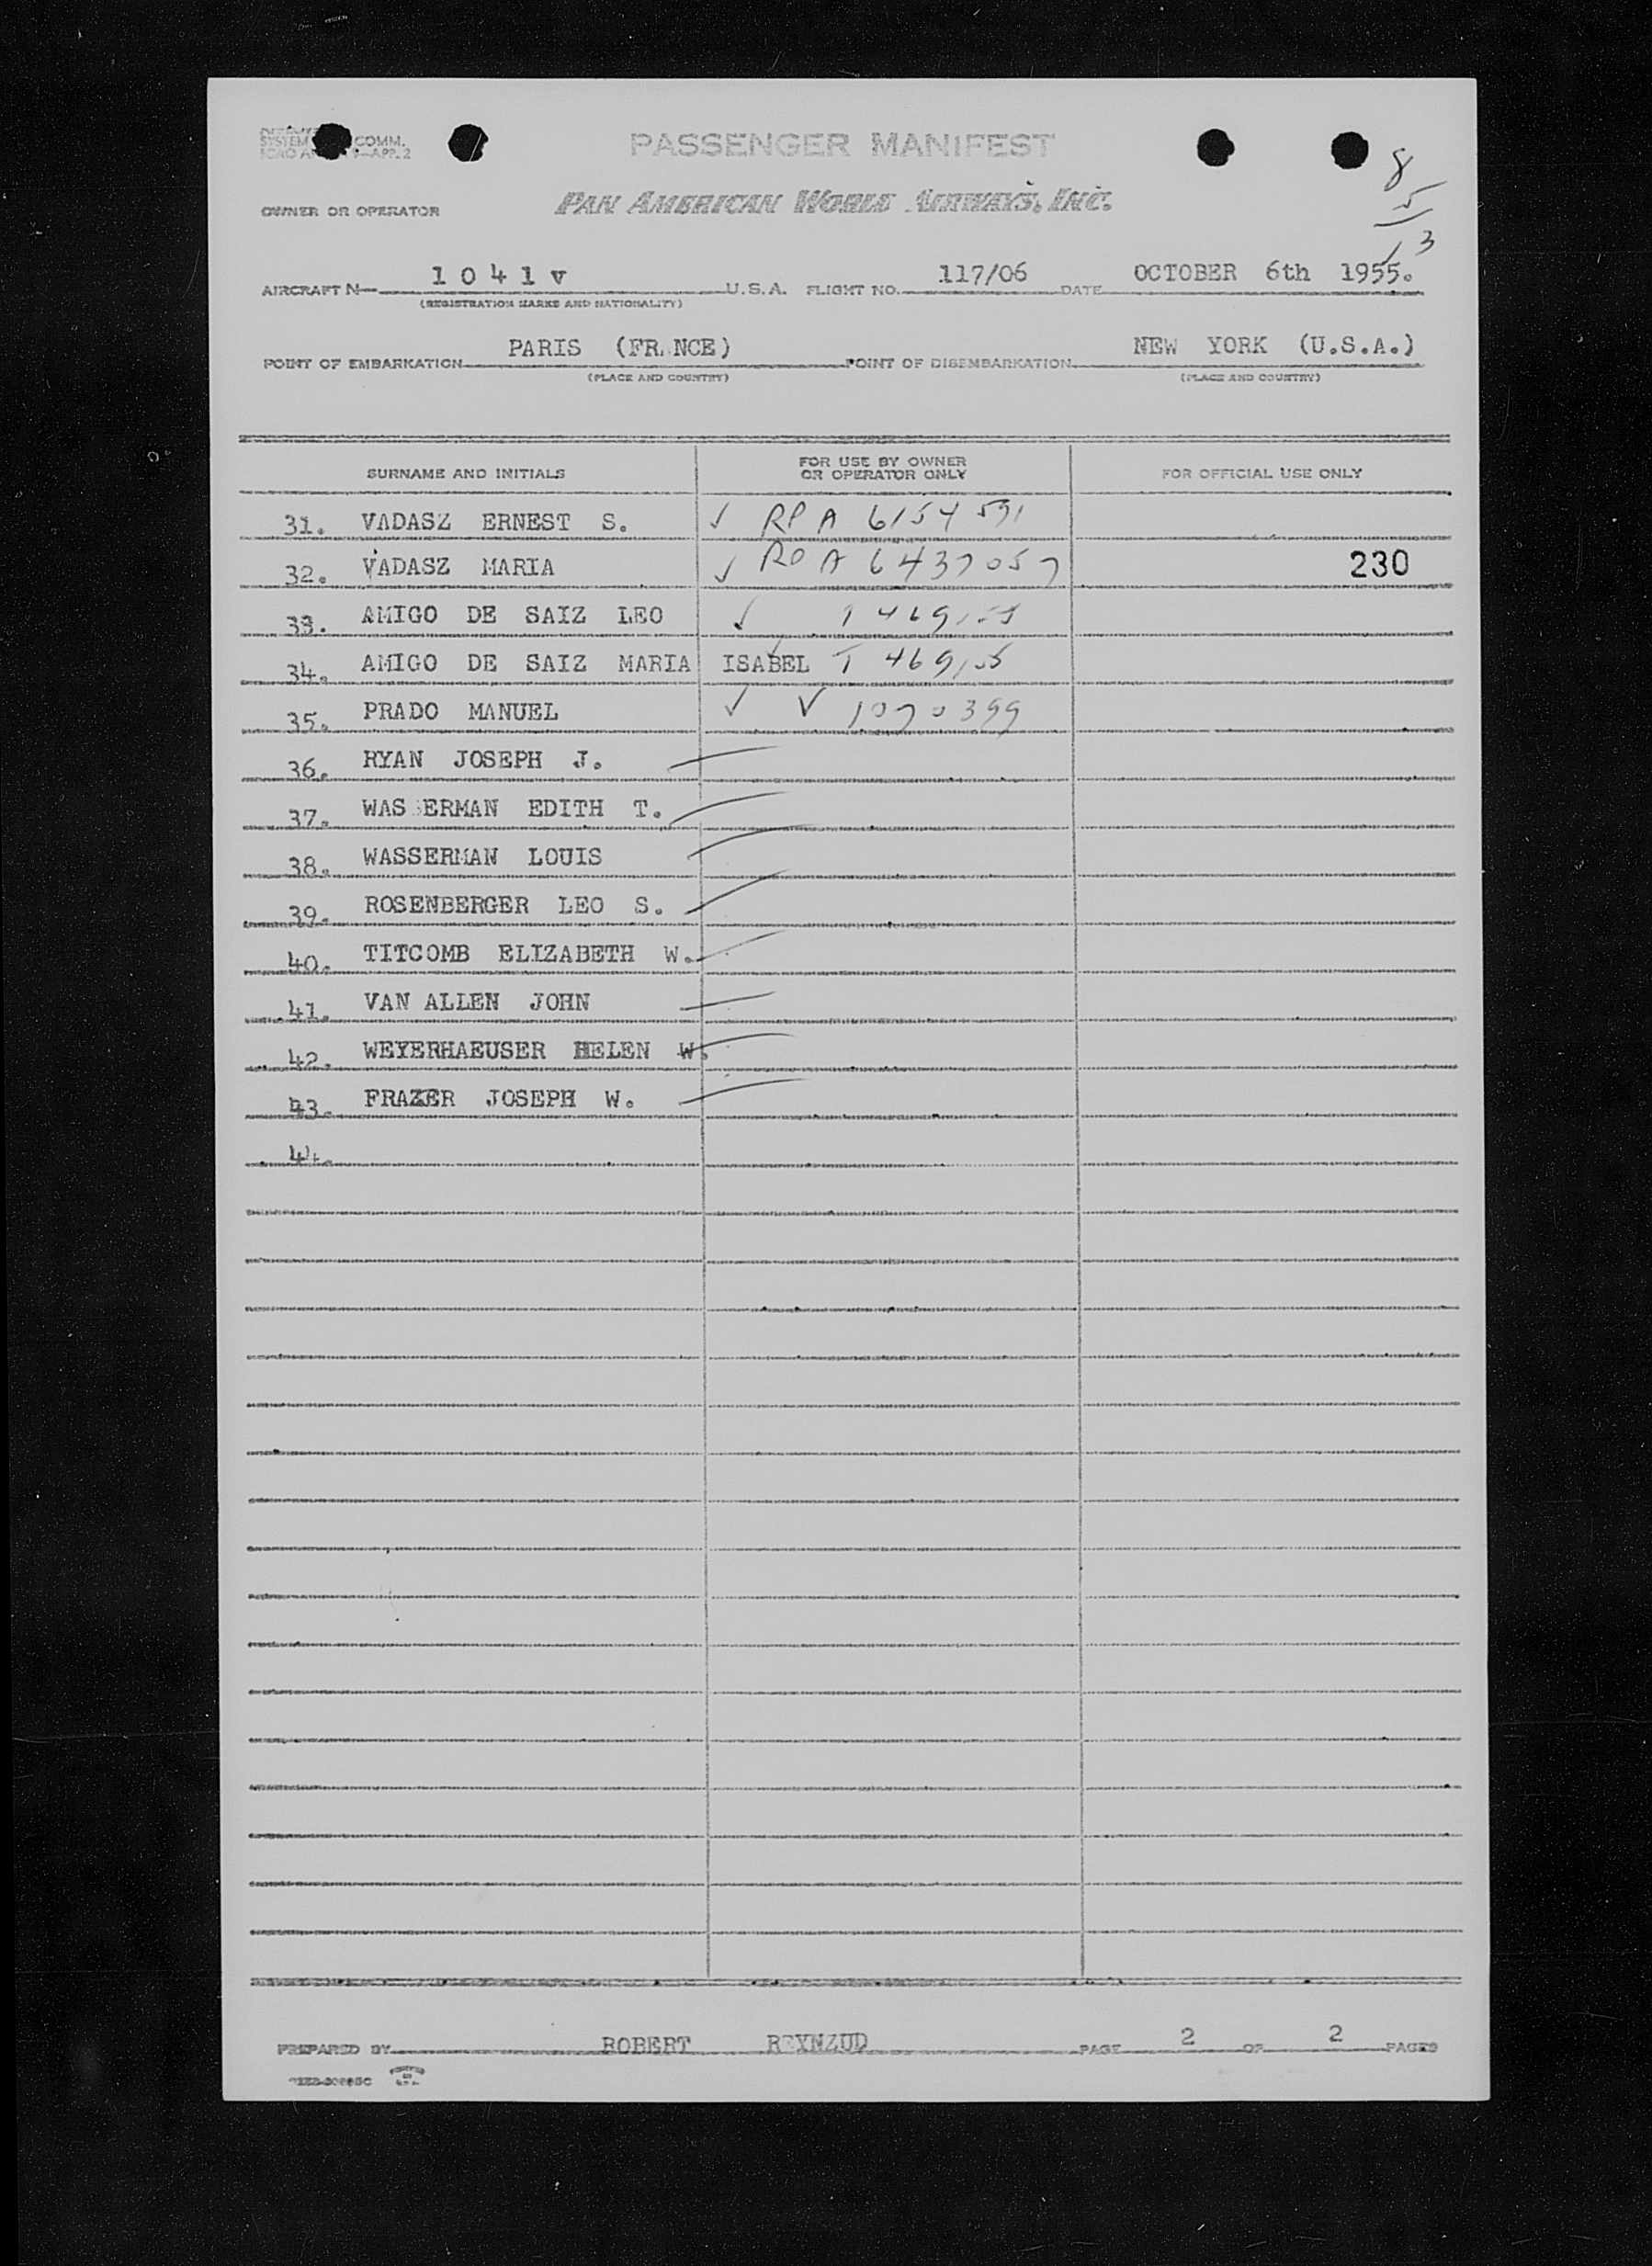 SYSTEM COMM.
APP. 2
PASSENGER MANIFEST
8
5
13
OWNER OR OPERATOR PAN AMERICAN WORLD AIRWAYS, INC.
AIRCRAFT N 1 0 4 1 V U.S.A. FLIGHT NO. 117/06 DATE OCTOBER 6th 1955.
(REGISTRATION MARKS AND NATIONALITY)
POINT OF EMBARKATION PARIS (FR NCE) POINT OF DISEMBARKATION NEW YORK (U.S.A.)
(PLACE AND COUNTRY) (PLACE AND COUNTRY)
SURNAME AND INITIALS FOR USE BY OWNER OR OPERATOR ONLY FOR OFFICIAL USE ONLY
31. VADASZ ERNEST S. ✓ RP A 6154591
32. VADASZ MARIA ✓ RP A 6437057 230
33. AMIGO DE SAIZ LEO ✓
34. AMIGO DE SAIZ MARIA ISABEL T
35. PRADO MANUEL ✓ V 1070399
36. RYAN JOSEPH J.
37. WASSERMAN EDITH T.
38. WASSERMAN LOUIS
39. ROSENBERGER LEO S.
40. TITCOMB ELIZABETH W.
41. VAN ALLEN JOHN
42. WEYERHAEUSER HELEN W.
43. FRAZER JOSEPH W.
44.
PREPARED BY ROBERT PAGE 2 OF 2 PAGES